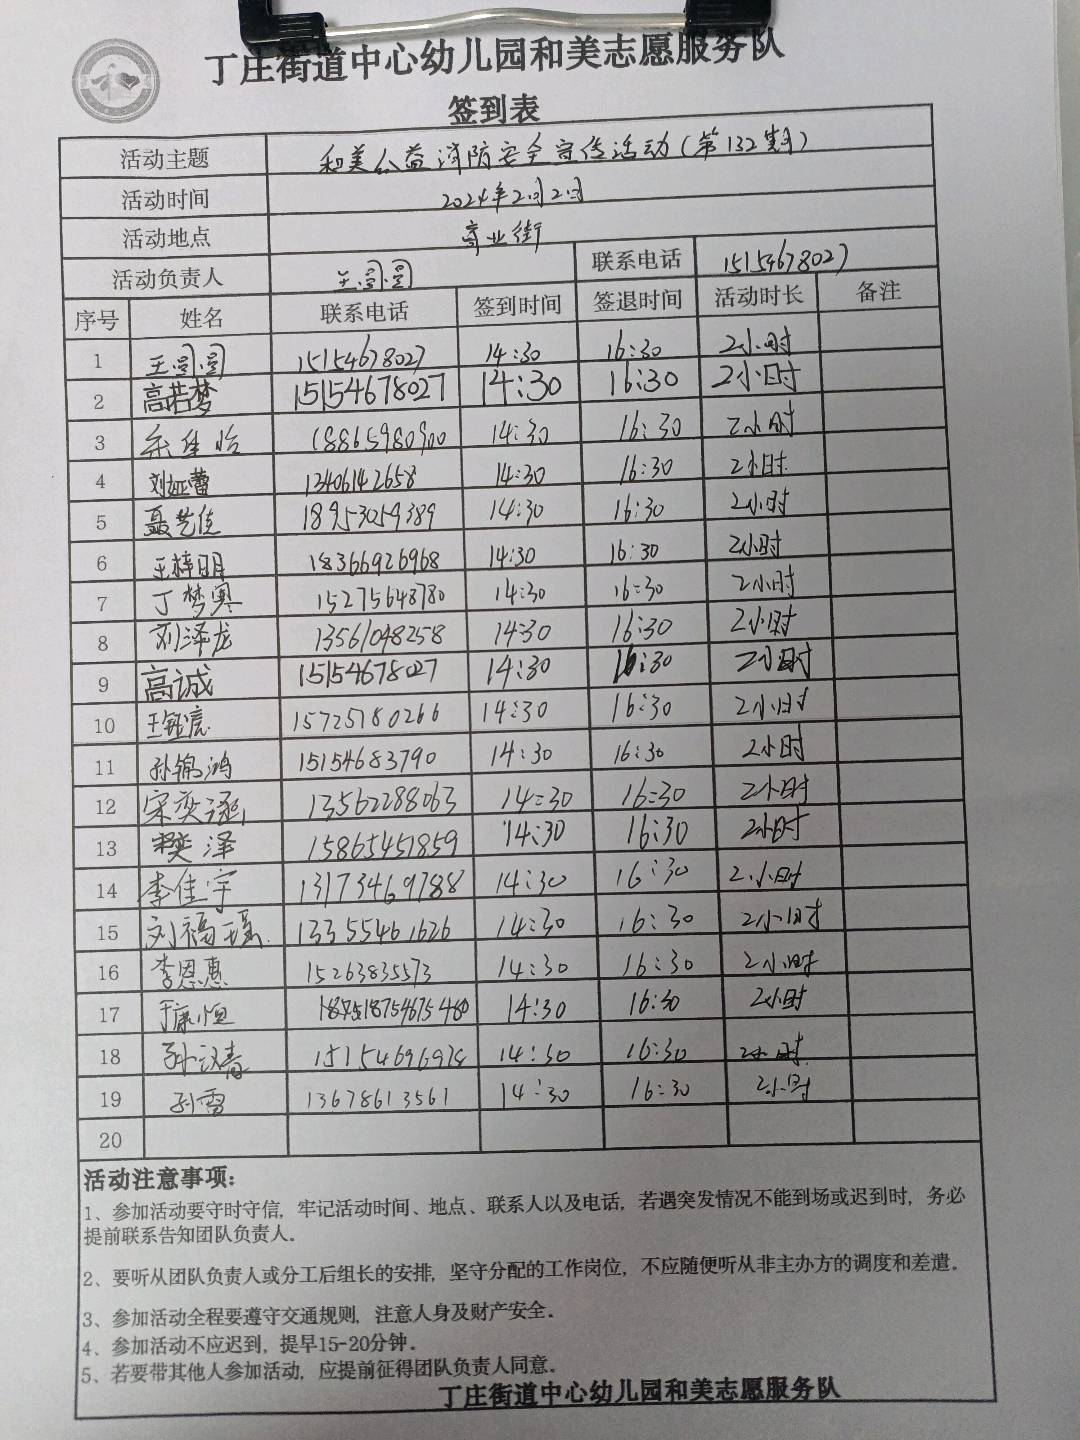 丁庄街道中心幼儿园和美志愿服务队
签到表
活动主题 和美公益消防安全宣传活动(第132期)
活动时间 2024年2月2日
活动地点 商业街
活动负责人 王圆圆 联系电话 15154678027
序号 姓名 联系电话 签到时间 签退时间 活动时长 备注
1 王圆圆 15154678027 14:30 16:30 2小时
2 高若梦 15154678027 14:30 16:30 2小时
3 18865980900 14:30 16:30 2小时
4 刘娅蕾 13406142658 14:30 16:30 2小时
5 聂艺佳 18953059389 14:30 16:30 2小时
6 王梓明 18366926968 14:30 16:30 2小时
7 丁梦寒 15275648780 14:30 16:30 2小时
8 刘泽龙 13561048258 14:30 16:30 2小时
9 高诚 15154678027 14:30 16:30 2小时
10 15725780266 14:30 16:30 2小时
11 孙锦鸿 15154683790 14:30 16:30 2小时
12 宋奕 13562288063 14:30 16:30 2小时
13 泽 15865451859 14:30 16:30 2小时
14 李佳宇 13173469788 14:30 16:30 2小时
15 刘福 13355461626 14:30 16:30 2小时
16 李恩惠 15263835573 14:30 16:30 2小时
17 于康恒 14:30 16:30 2小时
18 孙汉青 14:30 16:30 2小时
19 孙雪 13678613561 14:30 16:30 2小时
20
活动注意事项：
1、参加活动要守时守信，牢记活动时间、地点、联系人以及电话，若遇突发情况不能到场或迟到时，务必
提前联系告知团队负责人。
2、要听从团队负责人或分工后组长的安排，坚守分配的工作岗位，不应随便听从非主办方的调度和差遣。
3、参加活动全程要遵守交通规则，注意人身及财产安全。
4、参加活动不应迟到，提早15-20分钟。
5、若要带其他人参加活动，应提前征得团队负责人同意。
丁庄街道中心幼儿园和美志愿服务队